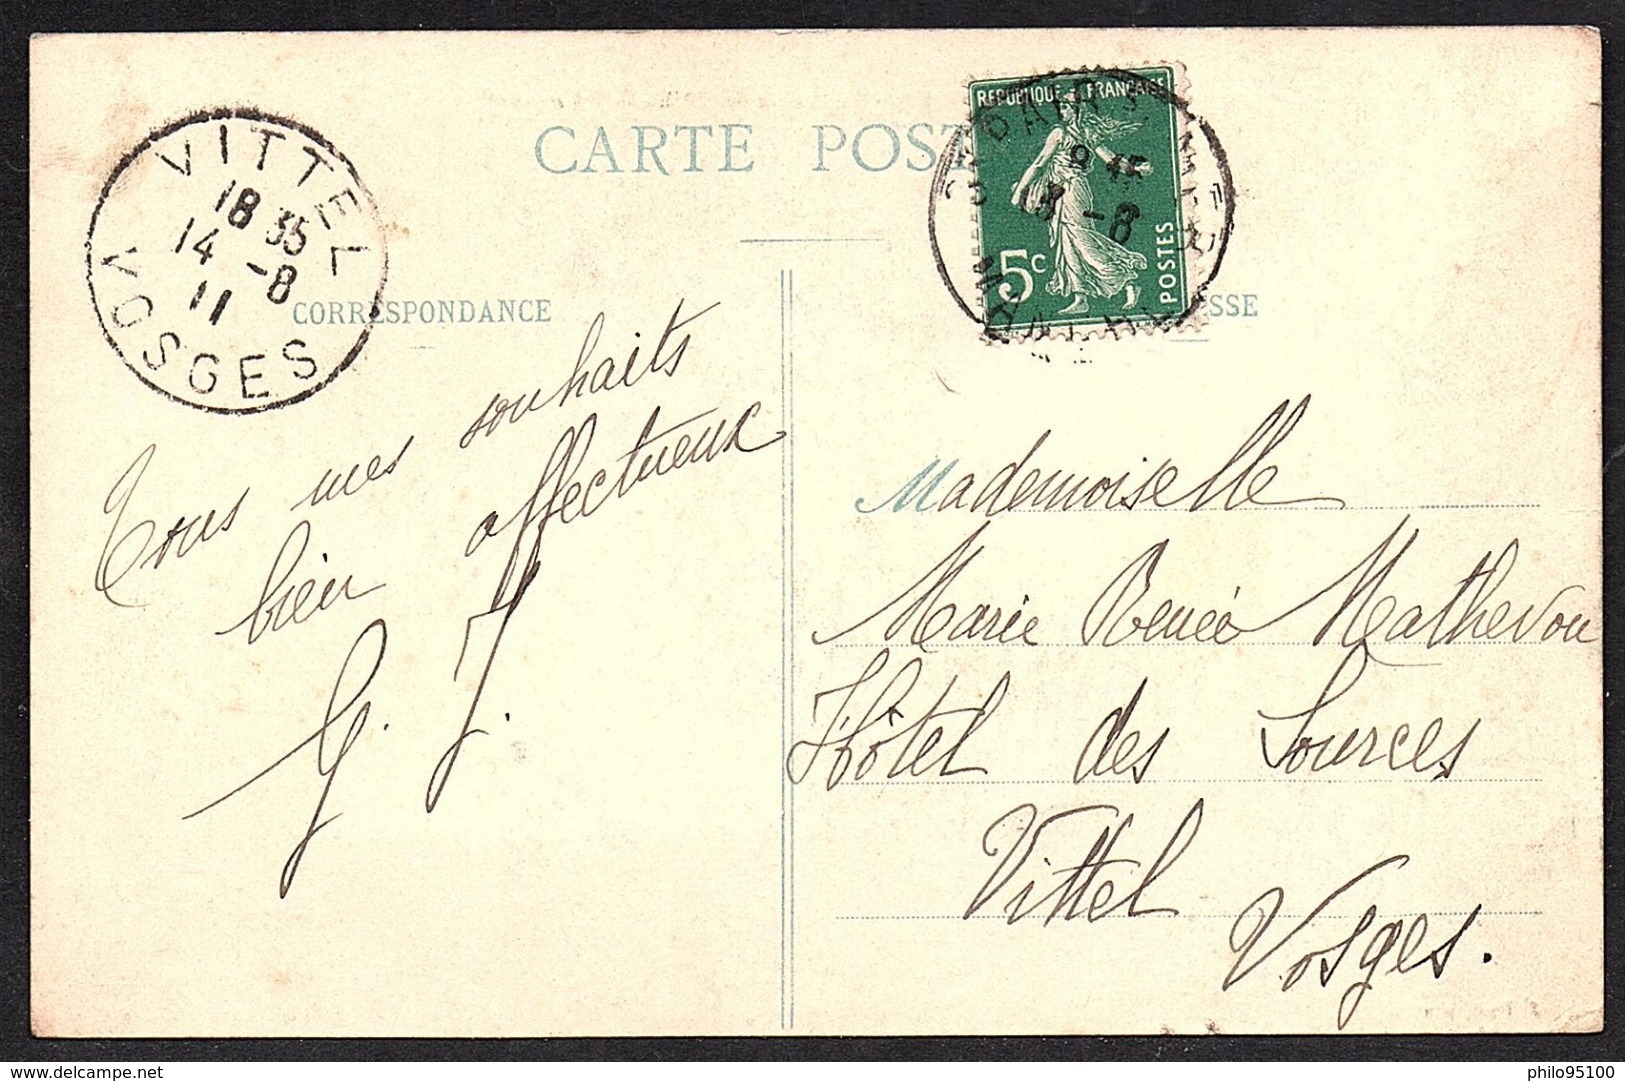 CARTE POST
VITTEL
18 35
14 -8
11
VOSGES
REPUBLIQUE FRANÇAISE
9 45
13 -8
5c
POSTES
CORRESPONDANCE
ESSE
Tous mes souhaits
bien affectueux
G. J.
Mademoiselle
Marie Renée Mathevon
Hôtel des Sources
Vittel
Vosges.
delcampe.net
philo95100